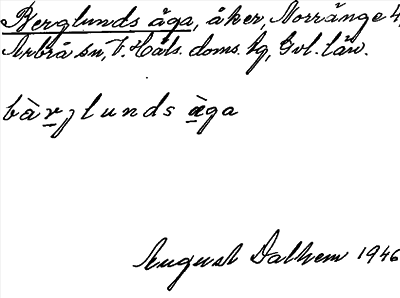 Berglunds åga, åker, Norränge 4,
Arbrå sn, V. Häls. doms. hg, Gvl. län.
bàrglunds àga
August Dalhem 1946